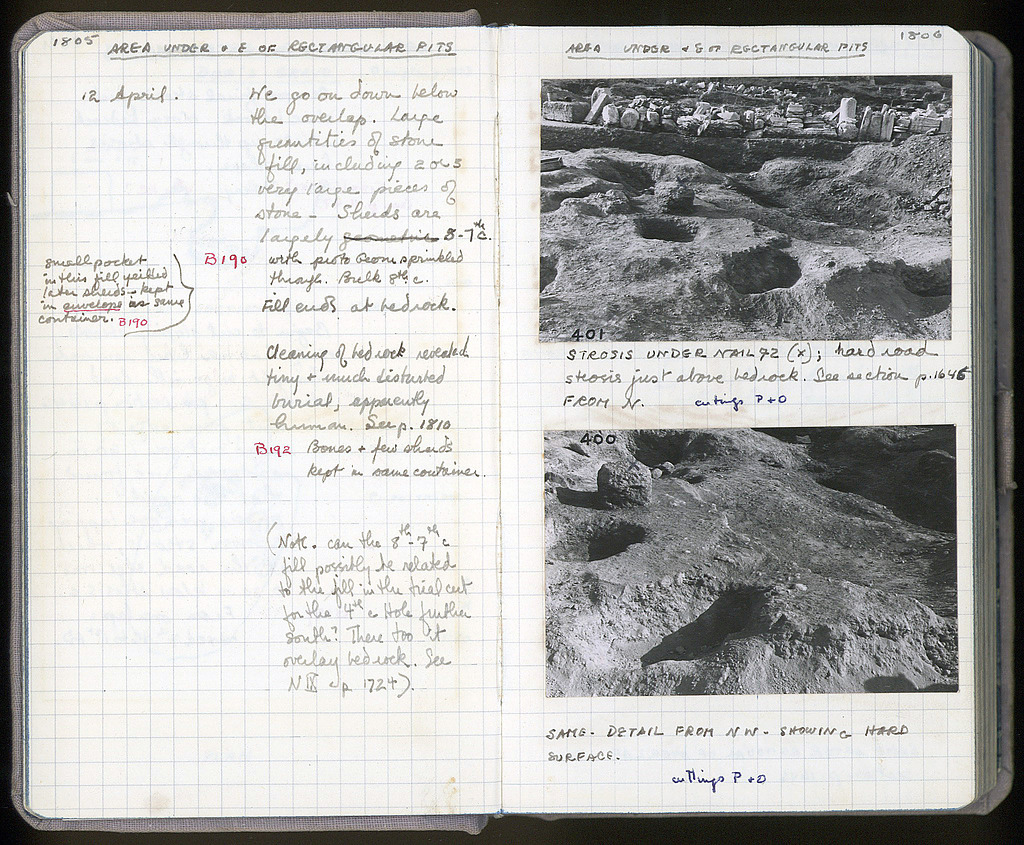 1805
AREA UNDER & E OF RECTANGULAR PITS
12 April.
We go on down below
the overlap. Large
quantities of stone
fill, including 2 or 3
very large pieces of
stone – Sherds are
largely geometric 8-7th c.
B190 with proto Geom sprinkled
through. Bulk 8th c.
Fill ends at bedrock.
small pocket
in this fill yeilded
later sherds – kept
in envelope in same
container. B190
Cleaning of bedrock revealed
tiny & much disturbed
burial, apparently
human. See p. 1810
B192 Bones + few sherds
kept in same container.
(Note. can the 8th-7th c
fill possibly be related
to the fill in the trial cut
for the 4th c Hole further
South? There too it
overlay bedrock. See
N IX p 1724).
1806
AREA UNDER & E OF RECTANGULAR PITS
401
STROSIS UNDER NAIL 92 (X); hard road
strosis just above bedrock. See section p. 1646
FROM N. cuttings P + O
400
SAME – DETAIL FROM NW – SHOWING HARD
SURFACE.
cuttings P + O